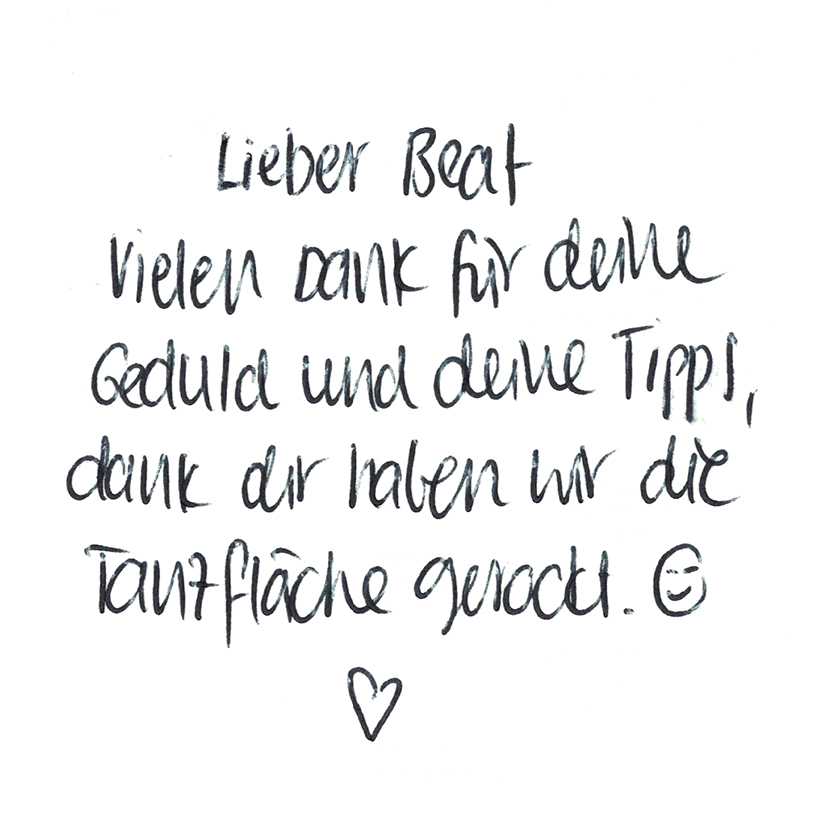 Lieber Beat
Vielen Dank für deine
Geduld und deine Tipps,
dank dir haben wir die
Tanzfläche gerockt. ☺
♡